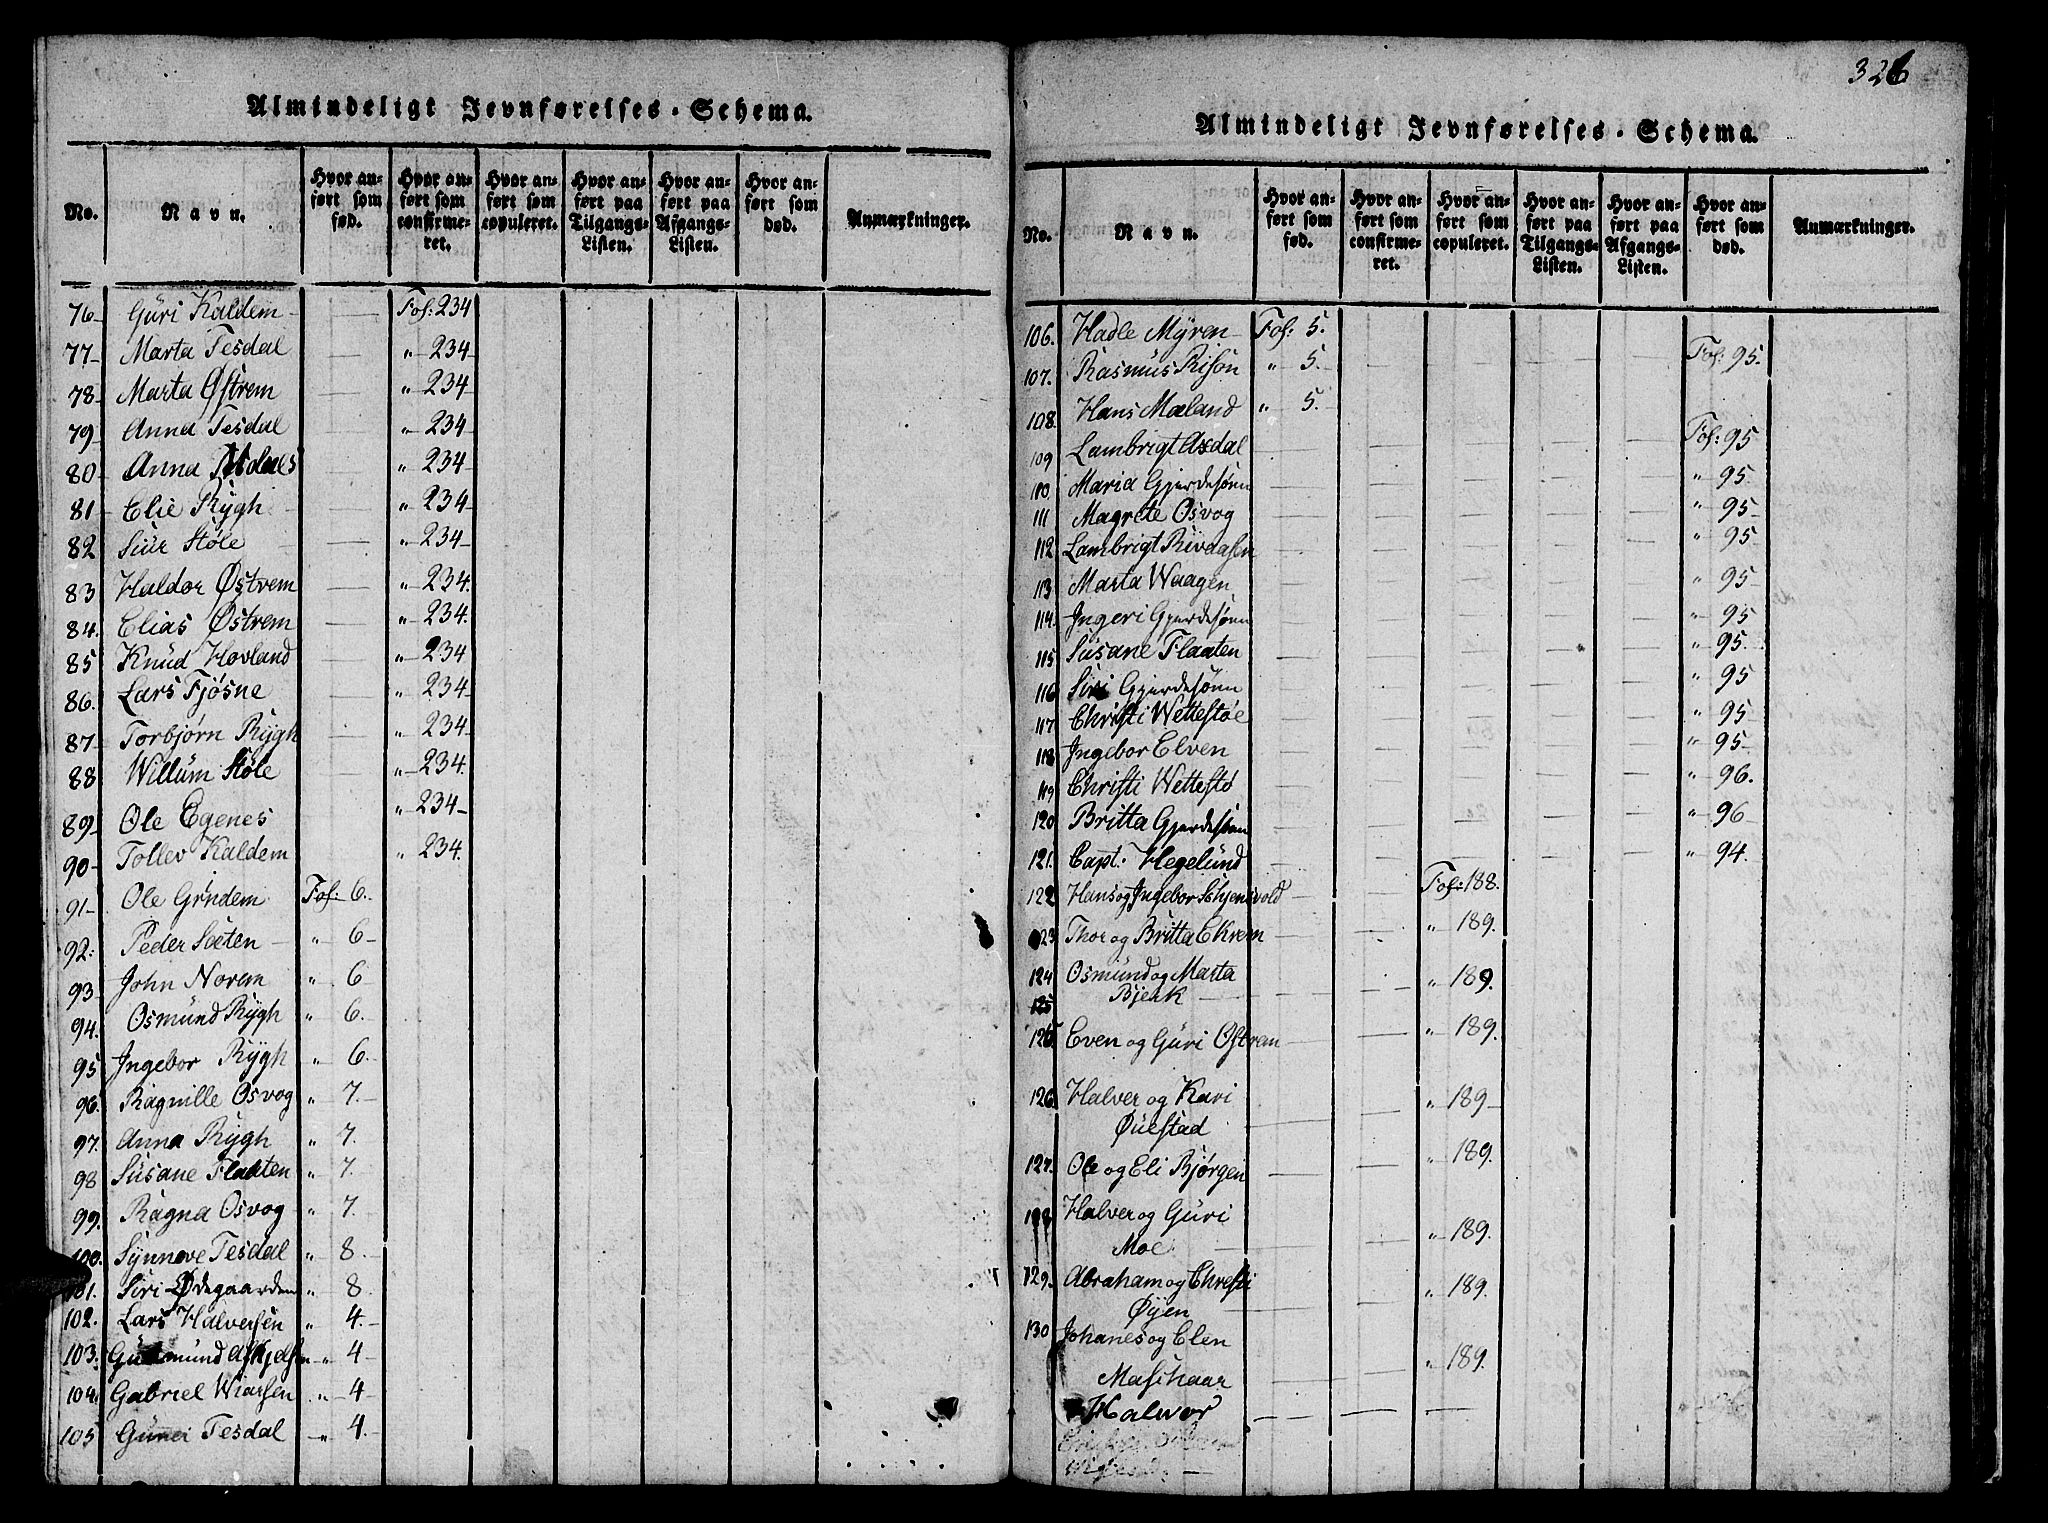 Almindeligt Jevnførelses-Schema.
No. Navn. Hvor anført som fød. Hvor anført som confirmeret. Hvor anført som copuleret. Hvor anført paa Tilgangs-Listen. Hvor anført paa Afgangs-Listen. Hvor anført som død. Anmærkninger.
76 Guri Kaldem Fol: 234
77 Marta Tesdal " 234
78 Marta Østrem " 234
79 Anna Tesdal " 234
80 Anna " 234
81 Elie Rygh " 234
82 Siur Støle " 234
83 Haldor Østrem " 234.
84. Elias Østrem " 234.
85 Knud Hovland " 234
86. Lars Fjøsne " 234
87 Torbjørn Rygh " 234
88 Willum Støle " 234.
89 Ole Egenes " 234
90 Tollev Kaldem " 234.
91 Ole Grindem Fol: 6.
92. Peder Sæten " 6
93 John Norem " 6
94. Osmund Rygh " 6.
95 Ingebor Rygh " 6.
96. Ragnille Osvog " 7.
97. Anna Rygh " 7.
98 Susane Flaaten " 7.
99. Ragna Osvog " 7.
100. Synneve Tesdal " 8.
101. Siri Ødegaarden " 8
102. Lars Halversen " 4.
103. Gudmund " 4
104. Gabriel " 4
105 Guri Tesdal " 4.
326
Almindeligt Jevnførelses-Schema.
No. Navn. Hvor anført som fød. Hvor anført som confirmeret. Hvor anført som copuleret. Hvor anført paa Tilgangs-Listen. Hvor anført paa Afgangs-Listen. Hvor anført som død. Anmærkninger.
106. Hadle Myren Fol: 5.
107. Rasmus Risøn " 5. Fol: 95.
108 Hans Mæland " 5.
109 Lambrigt Axdal Fol: 95
110 Maria Gjerdesøen " 95
111 Magrete Osvog " 95
112 Lambrigt Rivdasen " 95
113 Marta Waagen " 95
114. Ingeri Gjerdesøen " 95
115 Susane Flaaten " 95.
116 Siri Gjerdesøen " 95
117 Christi Wettestøe " 95
118 Ingebor Elven " 95
119 Christi Wettestø " 96.
120 Britta Gjerdesøen " 96
121. Capt. Hegelund " 94.
122 Hans og Ingebor Schjensvold Fol: 188.
123 Thor og Britta Ekrem " 189.
124 Osmund og Marta
125 Bjerk " 189.
125 Even og Guri Østrem " 189.
126. Halver og Kari " 189
Øuestad
127. Ole og Eli Bjørgen " 189.
128 Halver og Guri
Moe " 189.
129. Abraham og Christi " 189.
Øyen
130 Johanes og Elen
Maschaar " 189.
Halvor